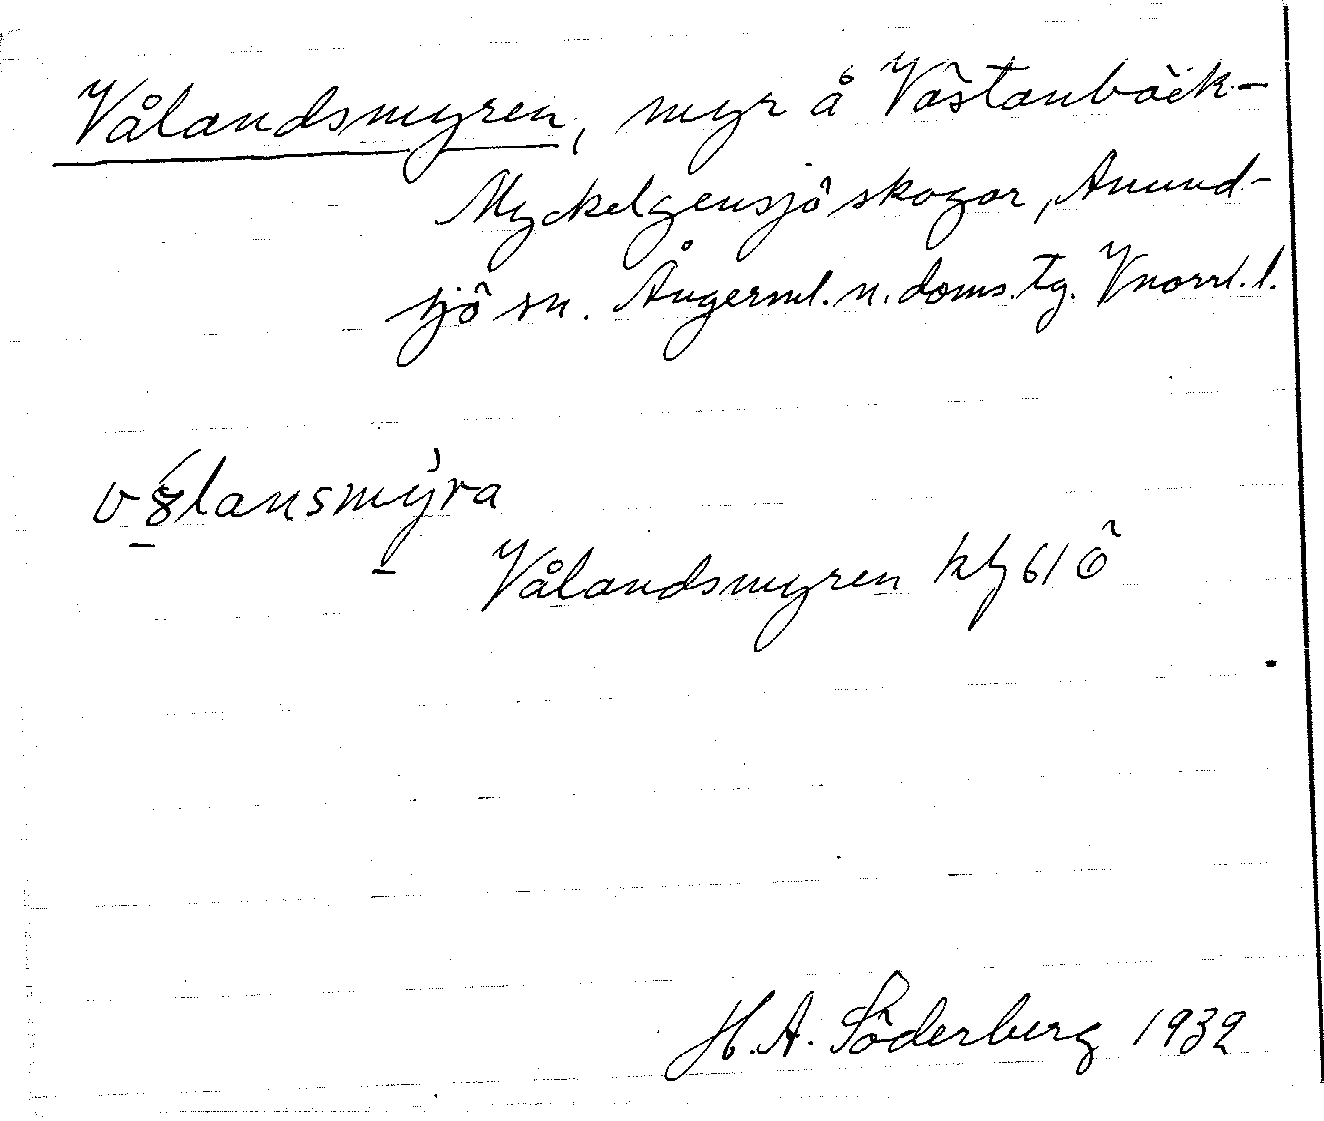 Vålandsmyren, myr å Västanbäck-
Myckelgensjö skogar, Anund-
sjö sn. Ångerml. n. doms. tg. Vnorrl. l.
lansmýra
Vålandsmyren kbl 61 Ö
H. A. Söderberg 1932